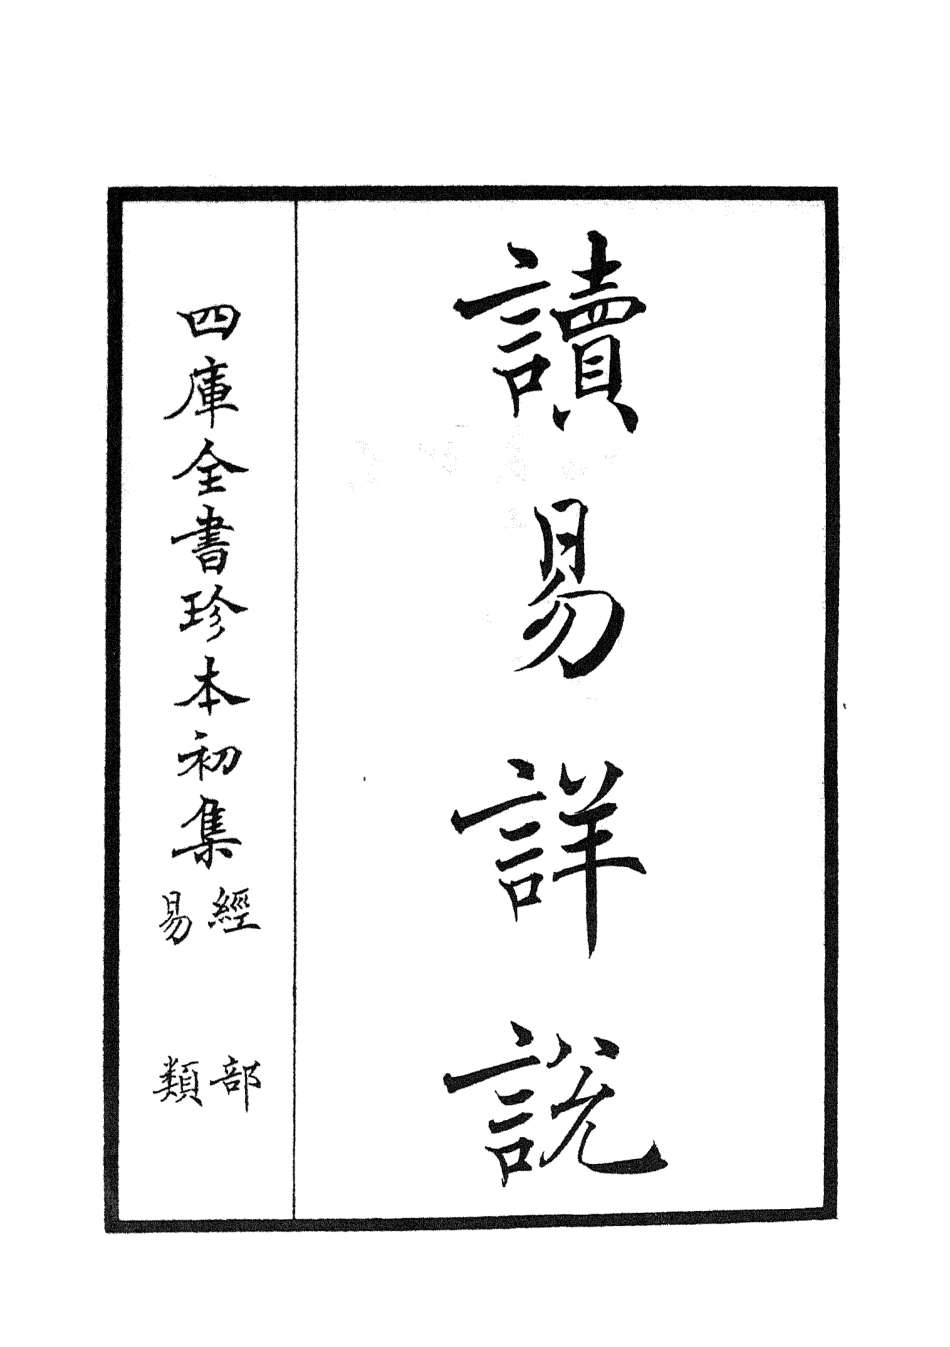 讀易詳說
四庫全書珍本初集
經部
易類